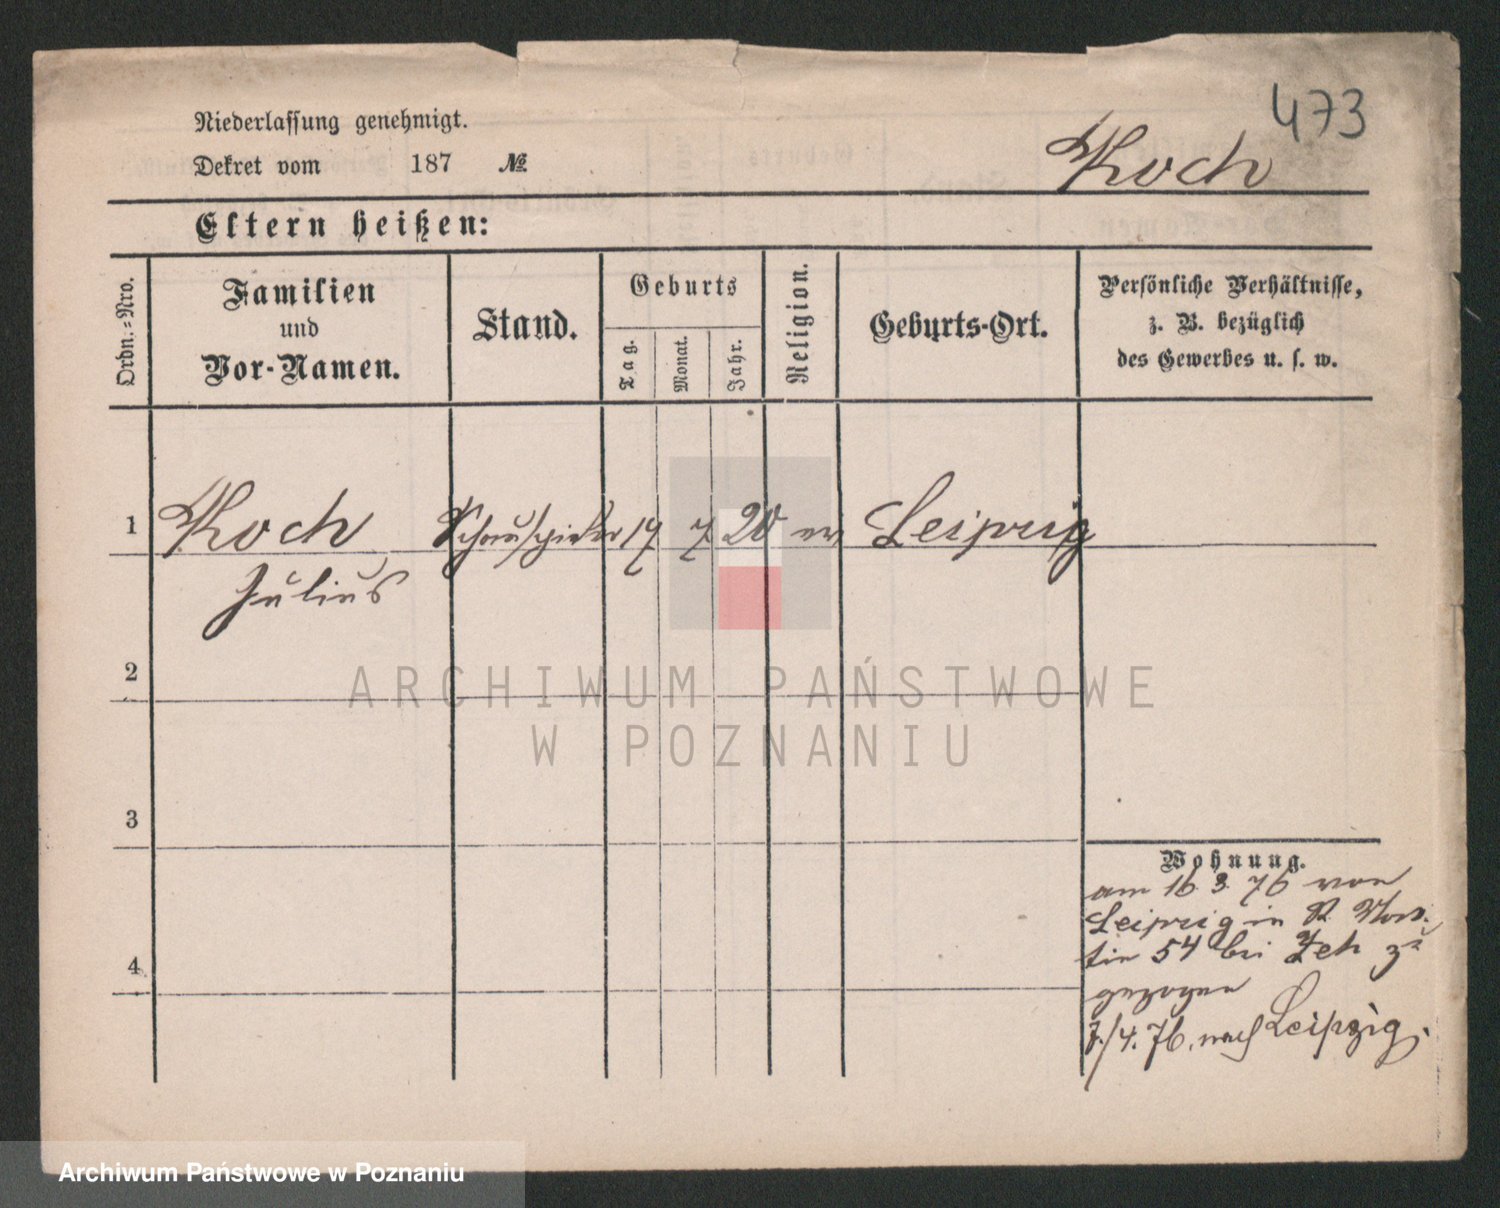 473
Niederlassung genehmigt.
Dekret vom 187 №
Koch
Eltern heißen:
Ordn.=Nro.
Familien
und
Vor-Namen.
Stand.
Geburts
Tag.
Monat.
Jahr.
Religion.
Geburts-Ort.
Persönliche Verhältnisse,
z. B. bezüglich
des Gewerbes u. s. w.
1 Koch Schauspieler 17 7 20 ev Leipzig
Julius
2
3
4
Wohnung.
am 16 3. 76 von
Leipzig in St. Mar
tin 54 bei Zeh zu
gezogen
7./4. 76. nach Leipzig.
ARCHIWUM PAŃSTWOWE
W POZNANIU
Archiwum Państwowe w Poznaniu